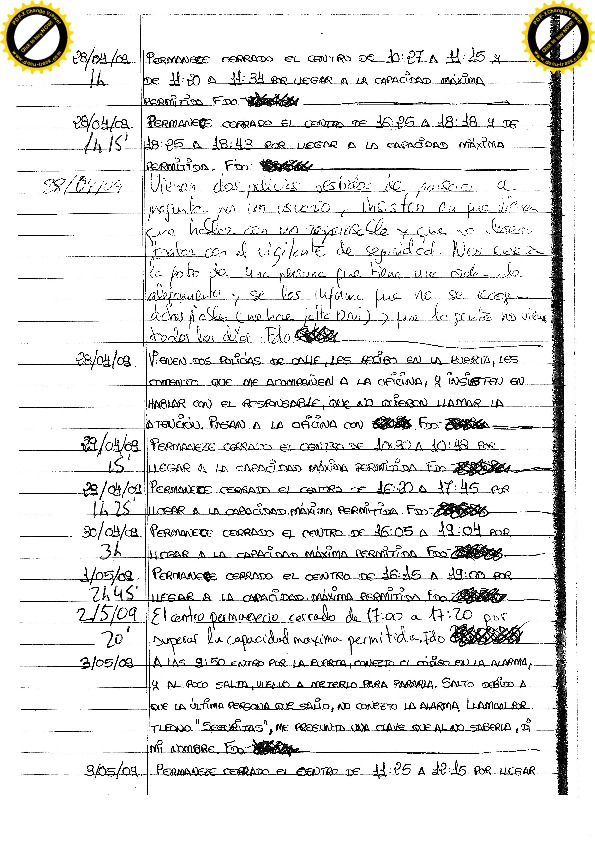 28/04/09 PERMANECE CERRADO EL CENTRO DE 10:27 A 11:15 Y
1h DE 11:20 A 11:34 POR LLEGAR A LA CAPACIDAD MÁXIMA
PERMITIDA FDO:
28/04/09 PERMANECE CERRADO EL CENTRO DE 16:25 A 18:18 Y DE
1h 15' 18:25 A 18:43 POR LLEGAR A LA CAPACIDAD MÁXIMA
PERMITIDA. FDO:
28/04/09 Vienen dos policías vestidos de paisano a
preguntar por un usuario y insisten en que tienen
que hablar con un responsable y que no desean
hablar con el vigilante de seguridad. Nos
la foto de una persona que tiene una orden de
alejamiento y se les informa que no se
datos y que la gente no viene
todos los días. Fdo
28/04/09 VIENEN DOS POLICÍAS DE CALLE, LES RECIBO EN LA PUERTA, LES
COMENTO QUE ME ACOMPAÑEN A LA OFICINA, Y INSISTEN EN
HABLAR CON EL RESPONSABLE, QUE NO QUIEREN LLAMAR LA
ATENCIÓN. PASAN A LA OFICINA CON FDO:
29/04/09 PERMANECE CERRADO EL CENTRO DE 10:30 A 10:48 POR
15' LLEGAR A LA CAPACIDAD MÁXIMA PERMITIDA FDO:
29/04/09 PERMANECE CERRADO EL CENTRO DE 16:20 A 17:45 POR
1h 25' LLEGAR A LA CAPACIDAD MÁXIMA PERMITIDA. FDO:
30/04/09 PERMANECE CERRADO EL CENTRO DE 16:05 A 19:04 POR
3h LLEGAR A LA CAPACIDAD MÁXIMA PERMITIDA FDO:
1/05/09 PERMANECE CERRADO EL CENTRO DE 16:15 A 19:00 POR
2h 45' LLEGAR A LA CAPACIDAD MÁXIMA PERMITIDA FDO:
2/5/09 El centro permanecio cerrado de 17:00 a 17:20 por
20' superar la capacidad maxima permitida. Fdo
3/05/09 A LAS 9:50 ENTRO POR LA PUERTA, CONECTO EL CÓDIGO EN LA ALARMA,
Y AL POCO SALTA, VUELVO A METERLO PARA PARARLA. SALTO DEBIDO A
QUE LA ÚLTIMA PERSONA QUE SALIO, NO CONECTO LA ALARMA. LLAMAN POR
TLEFONO "SECURITAS", ME PREGUNTA UNA CLAVE QUE AL NO SABERLA, DI
MI NOMBRE. FDO:
3/05/09 PERMANECE CERRADO EL CENTRO DE 11:25 A 12:15 POR LLEGAR